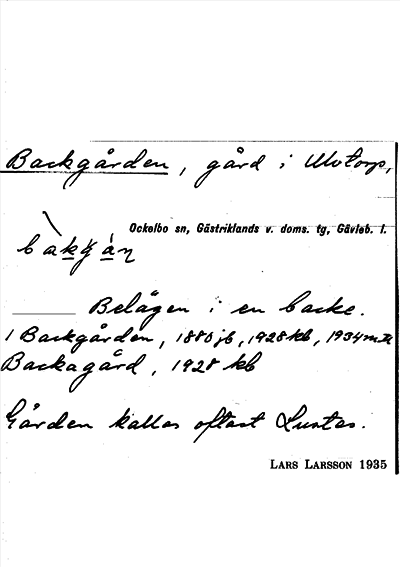 Backgården, gård i Ulvtorp,
Ockelbo sn, Gästriklands v. doms. tg, Gävleb. l.
Belägen i en backe.
1 Backgården, 1880 jb, 1928 kb, 1934
Backagård, 1928 kb
Gården kallas oftast Lustas.
LARS LARSSON 1935